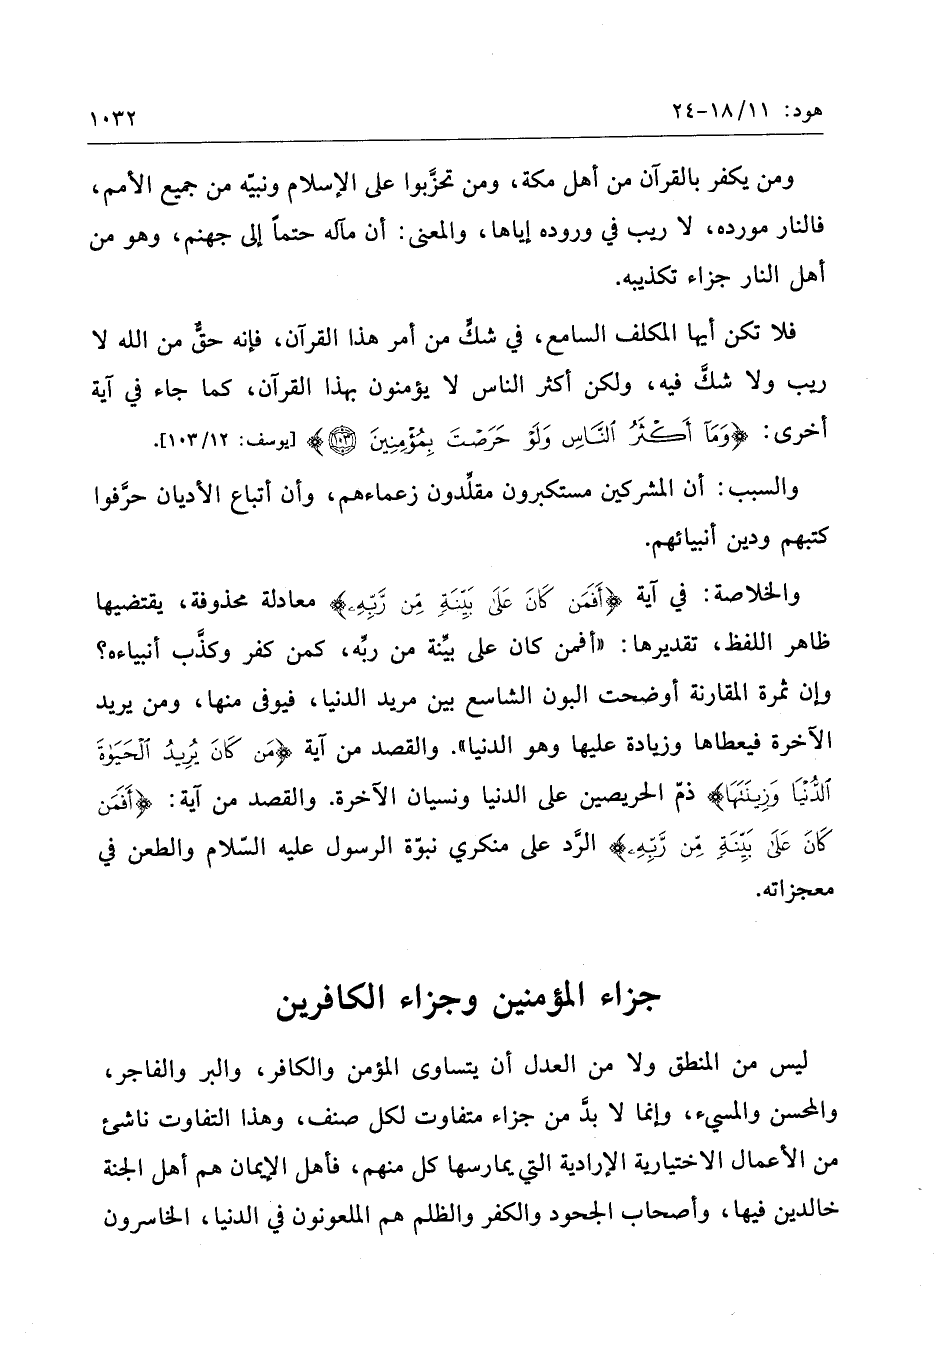 هود: ١٨/١١-٢٤ ١٠٣٢
ومن يكفر بالقرآن من أهل مكة، ومن تحزَّبوا على الإسلام ونبيّه من جميع الأمم،
فالنار مورده، لا ريب في وروده إياها، والمعنى: أن مآله حتماً إلى جهنم، وهو من
أهل النار جزاء تكذيبه.
فلا تكن أيها المكلف السامع، في شكٍّ من أمر هذا القرآن، فإنه حقٌّ من الله لا
ريب ولا شكَّ فيه، ولكن أكثر الناس لا يؤمنون بهذا القرآن، كما جاء في آية
أخرى: ﴿وَمَآ أَكْثَرُ ٱلنَّاسِ وَلَوْ حَرَصْتَ بِمُؤْمِنِينَ ١٠٣﴾ [يوسف: ١٠٣/١٢].
والسبب: أن المشركين مستكبرون مقلِّدون زعماءهم، وأن أتباع الأديان حرَّفوا
كتبهم ودين أنبيائهم.
والخلاصة: في آية ﴿أَفَمَن كَانَ عَلَىٰ بَيِّنَةٍ مِّن رَّبِّهِۦ﴾ معادلة محذوفة، يقتضيها
ظاهر اللفظ، تقديرها: «أفمن كان على بيِّنة من ربِّه، كمن كفر وكذَّب أنبياءه؟
وإن ثمرة المقارنة أوضحت البون الشاسع بين مريد الدنيا، فيوفى منها، ومن يريد
الآخرة فيعطاها وزيادة عليها وهو الدنيا». والقصد من آية ﴿مَن كَانَ يُرِيدُ ٱلْحَيَوٰةَ
ٱلدُّنْيَا وَزِينَتَهَا﴾ ذمّ الحريصين على الدنيا ونسيان الآخرة. والقصد من آية: ﴿أَفَمَن
كَانَ عَلَىٰ بَيِّنَةٍ مِّن رَّبِّهِۦ﴾ الرَّد على منكري نبوّة الرسول عليه السّلام والطعن في
معجزاته.
جزاء المؤمنين وجزاء الكافرين
ليس من المنطق ولا من العدل أن يتساوى المؤمن والكافر، والبر والفاجر،
والمحسن والمسيء، وإنما لا بدَّ من جزاء متفاوت لكل صنف، وهذا التفاوت ناشئ
من الأعمال الاختيارية الإرادية التي يمارسها كل منهم، فأهل الإيمان هم أهل الجنة
خالدين فيها، وأصحاب الجحود والكفر والظلم هم الملعونون في الدنيا، الخاسرون